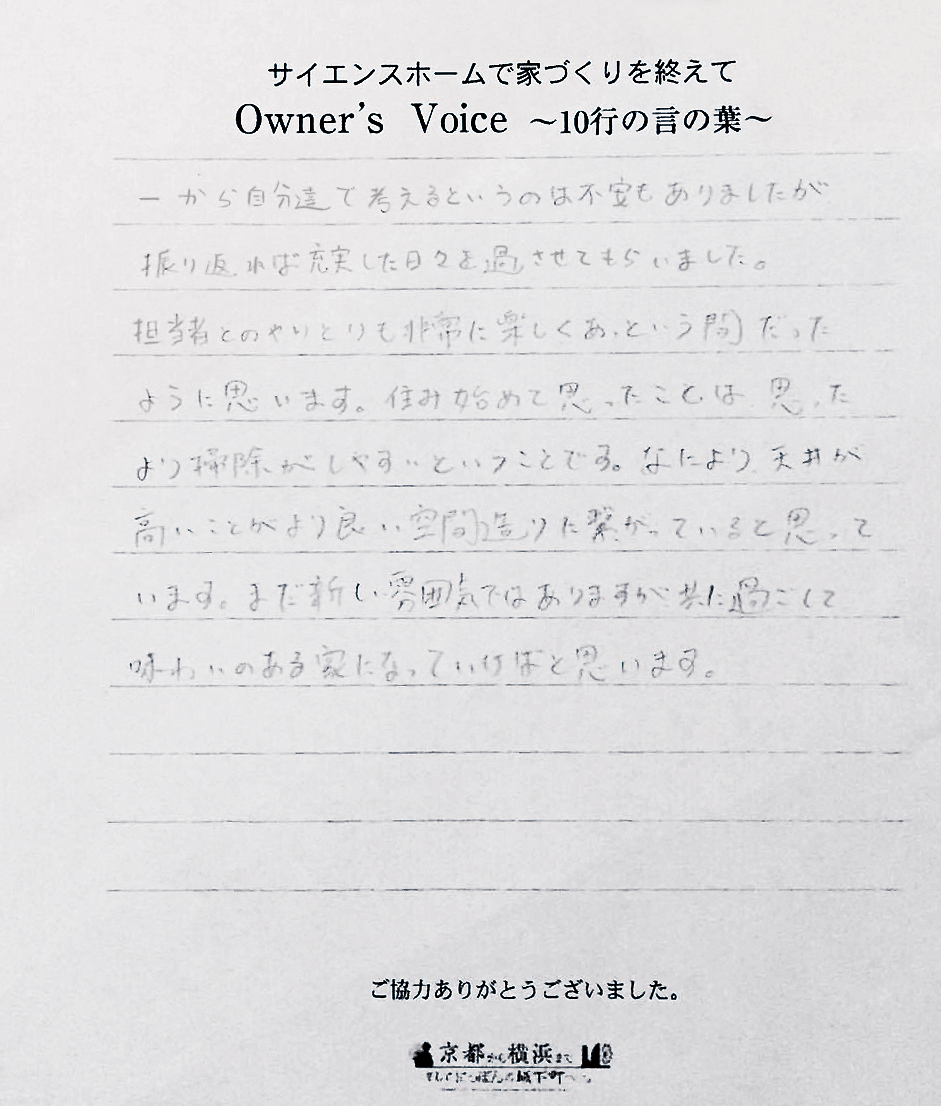 サイエンスホームで家づくりを終えて
Owner's Voice ～10行の言の葉～
一から自分達で考えるというのは不安もありましたが
振り返れば充実した日々を過させてもらいました。
担当者とのやりとりも非常に楽しくあっという間だった
ように思います。住み始めて思ったことは思った
より掃除がしやすいということです。なにより天井が
高いことがより良い空間造りに繋がっていると思って
います。まだ新しい雰囲気ではありますが共に過ごして
味わいのある家になっていけばと思います。
ご協力ありがとうございました。
京都から横浜まで